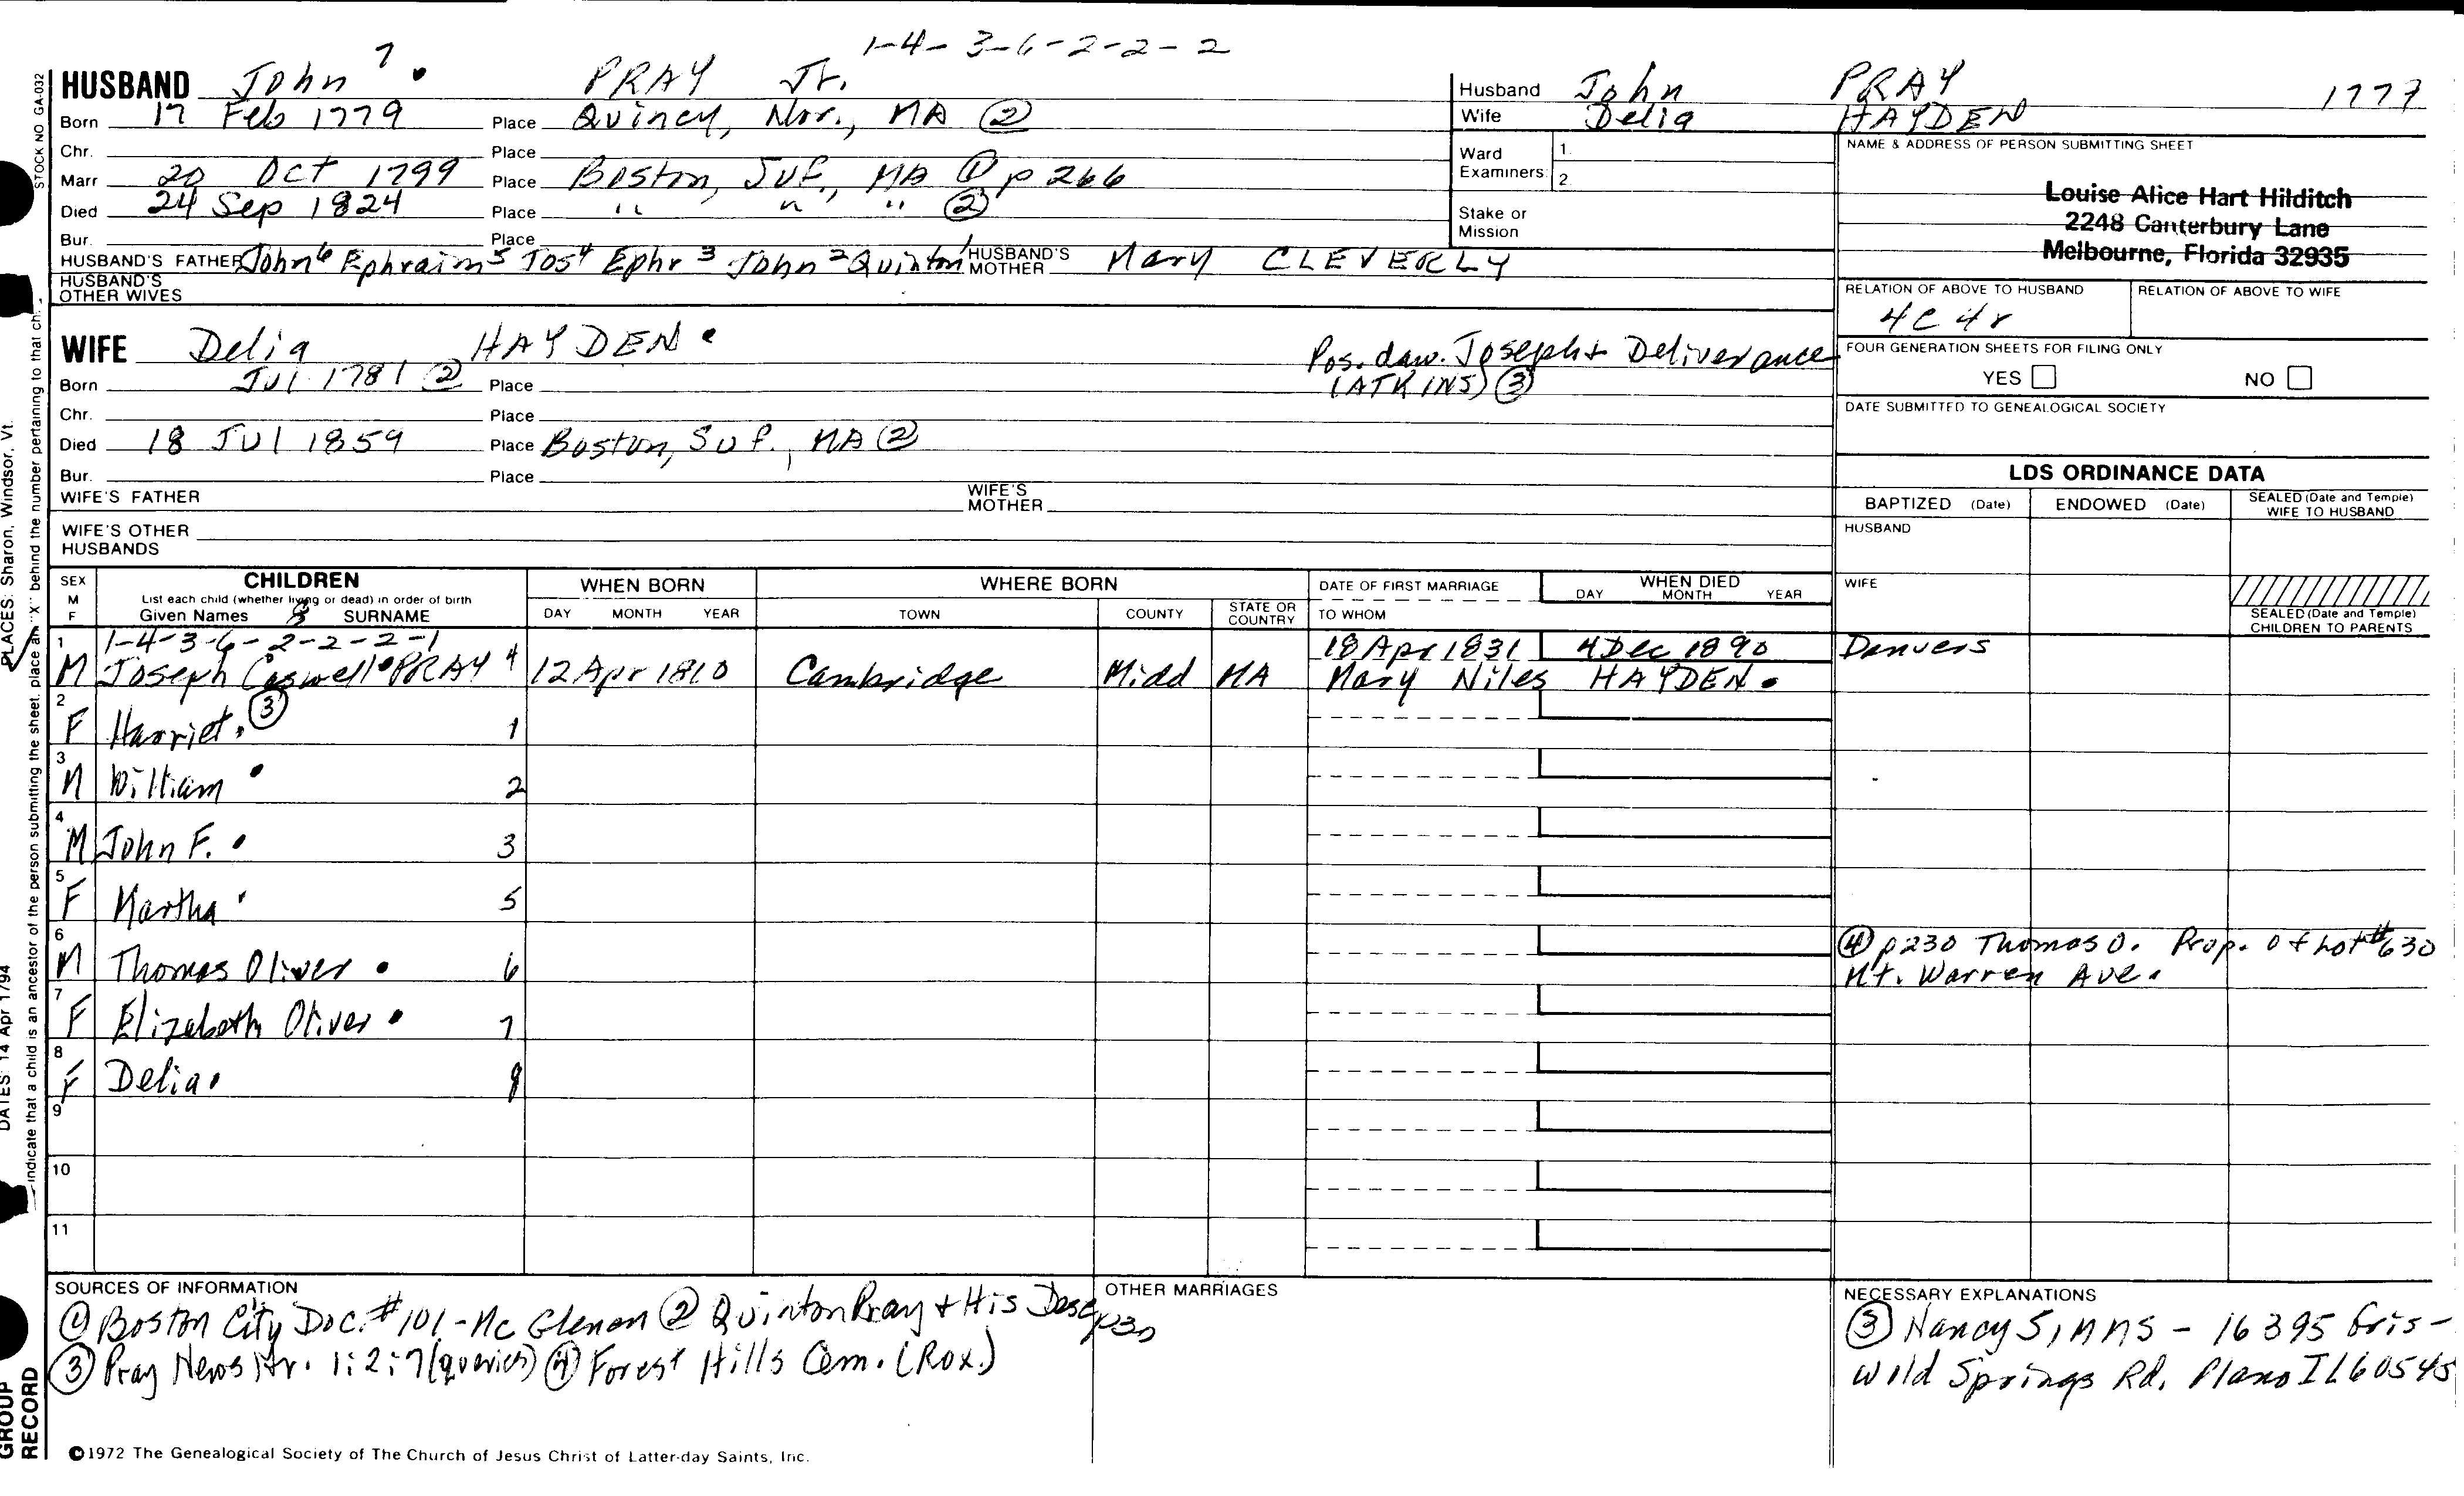 1-4-3-6-2-2-2
STOCK NO GA-032
HUSBAND John 7 . PRAY Jr.
Born 17 Feb 1779 Place Quincy, Nor., MA ②
Chr. Place
Marr 20 Oct 1799 Place Boston, Suf., MA ① p 266
Died 24 Sep 1824 Place " " " ②
Bur. Place
HUSBAND'S FATHER John 6 Ephraim 5 Jos 4 Ephr 3 John 2 Quinton 1 HUSBAND'S MOTHER Mary CLEVERLY
HUSBAND'S OTHER WIVES
Husband John PRAY 1777
Wife Delia HAYDEN
Ward Examiners: 1.
2
Stake or Mission
NAME & ADDRESS OF PERSON SUBMITTING SHEET
Louise Alice Hart Hilditch
2248 Canterbury Lane
Melbourne, Florida 32935
RELATION OF ABOVE TO HUSBAND RELATION OF ABOVE TO WIFE
4C 4r
WIFE Delia HAYDEN . Pos. dau. Joseph + Deliverance
(ATKINS) ③
Born Jul 1781 ② Place
Chr. Place
Died 18 Jul 1859 Place Boston, Suf., MA ②
Bur. Place
WIFE'S FATHER WIFE'S MOTHER
WIFE'S OTHER HUSBANDS
FOUR GENERATION SHEETS FOR FILING ONLY
YES NO
DATE SUBMITTED TO GENEALOGICAL SOCIETY
LDS ORDINANCE DATA
BAPTIZED (Date) ENDOWED (Date) SEALED (Date and Temple) WIFE TO HUSBAND
HUSBAND
WIFE
SEALED (Date and Temple) CHILDREN TO PARENTS
SEX M F CHILDREN WHEN BORN WHERE BORN DATE OF FIRST MARRIAGE WHEN DIED
List each child (whether living or dead) in order of birth
Given Names 8 SURNAME DAY MONTH YEAR TOWN COUNTY STATE OR COUNTRY TO WHOM DAY MONTH YEAR
1 1-4-3-6-2-2-2-1 18 Apr 1831 4 Dec 1890 Danvers
M Joseph Caswell . PRAY 4 12 Apr 1810 Cambridge Midd MA Mary Niles HAYDEN .
2 F Harriet . ③ 1
3 M William . 2
4 M John F. . 3
5 F Martha . 5
6 M Thomas Oliver . 6 ④ p230 Thomas O. Prop. of Lot #630
Mt. Warren Ave.
7 F Elizabeth Oliver . 7
8 F Delia . 8
9
10
11
SOURCES OF INFORMATION
① Boston City Doc. #101 - Mc Glenen ② Quinton Pray + His Desc p30
③ Pray Newsltr. 1:2:7 (queries) ④ Forest Hills Cem. (Rox.)
OTHER MARRIAGES
NECESSARY EXPLANATIONS
③ Nancy SIMMS - 16395 Gris-
wold Springs Rd. Plano IL 60545
©1972 The Genealogical Society of The Church of Jesus Christ of Latter-day Saints, Inc.
PLACES: Sharon, Windsor, Vt.
DATES: 14 Apr 1794
indicate that a child is an ancestor of the person submitting the sheet, place an "X" behind the number pertaining to that ch
GROUP RECORD